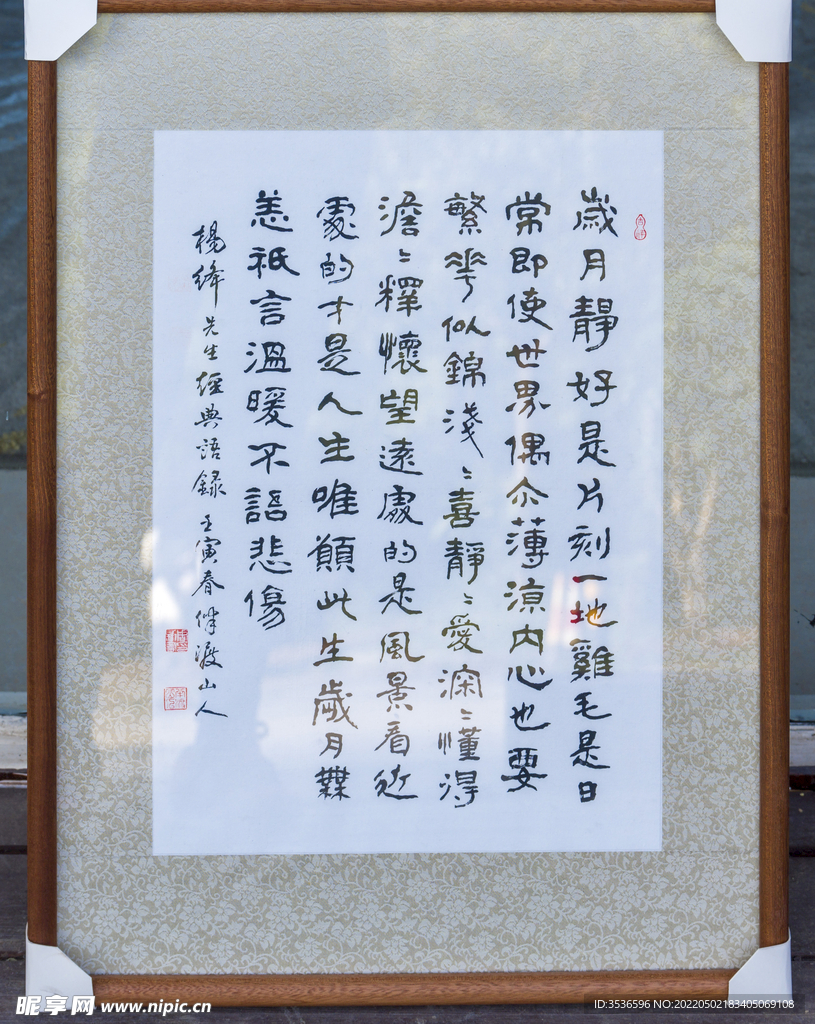 歲月靜好是片刻一地雞毛是日
常即使世界偶尒薄涼内心也要
繁華似錦淺〻喜靜〻愛深〻懂得
澹〻釋懷望遠處的是風景看近
處的才是人生唯願此生歲月無
恙祇言溫暖不語悲傷
楊絳先生經典語録 壬寅春 渡山人
昵享网 www.nipic.cn
ID:3536596 NO:20220502183405069108